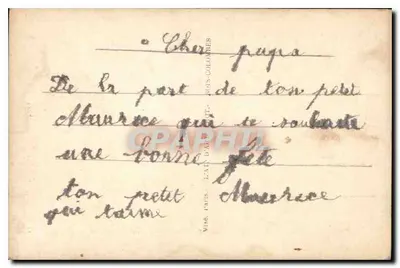 Cher papa
De la part de ton petit
Maurice qui te souhaite
une bonne fête
ton petit Maurice
qui t'aime
CPAPHIL